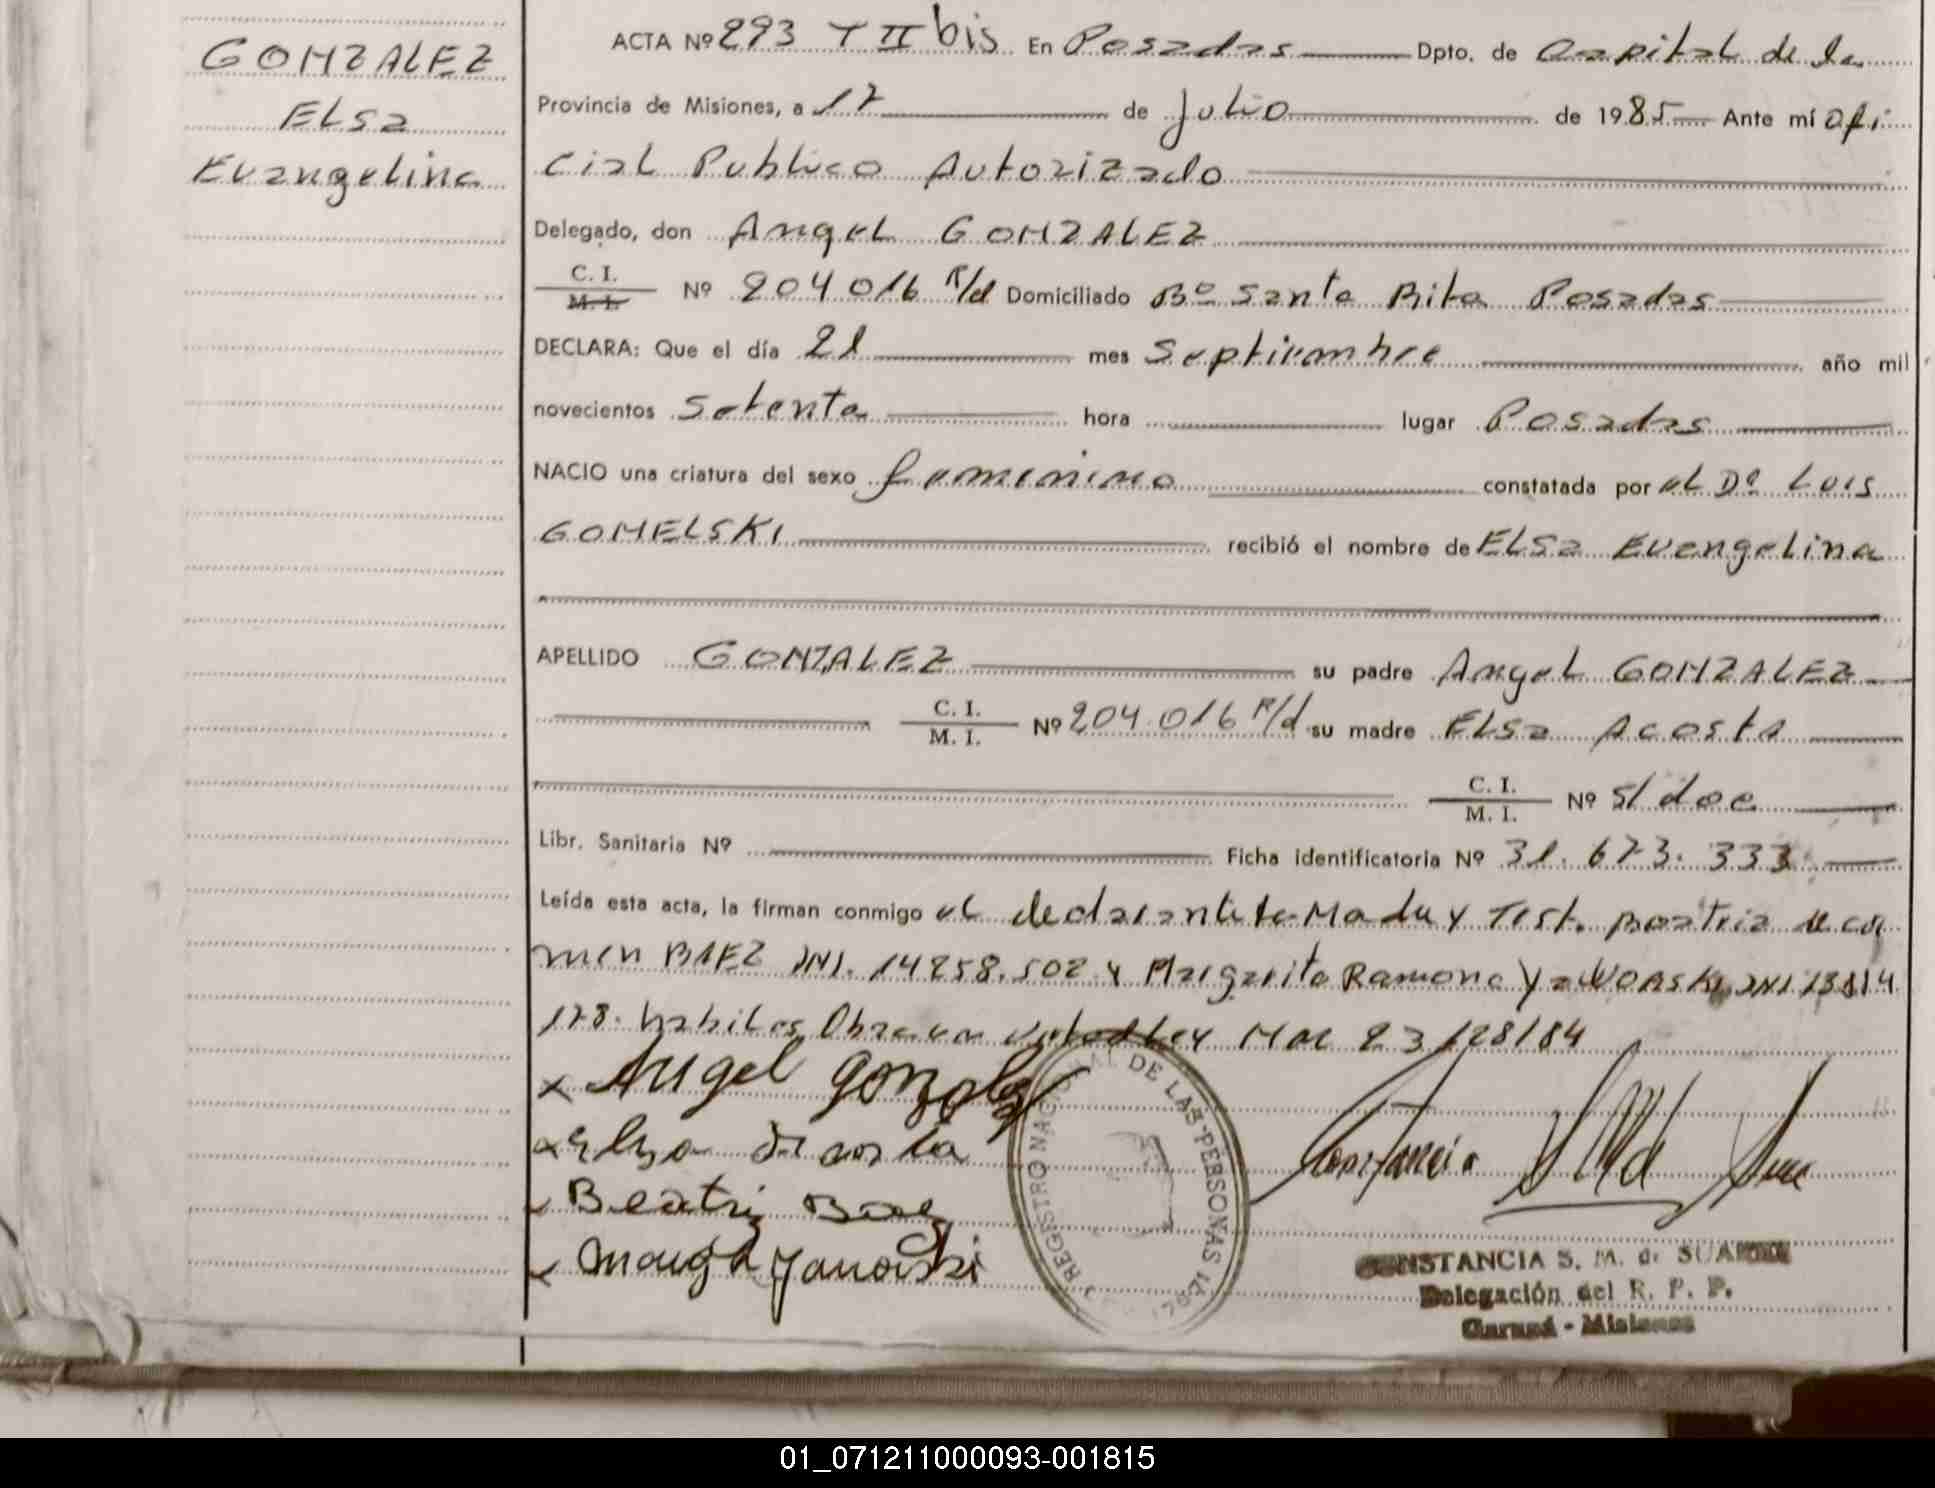 GONZALEZ
ELSa
Evangelina
ACTA Nº 293 T II bis En Posadas Dpto. de Capital de la
Provincia de Misiones, a 17 de Julio de 1985 Ante mí ofi
cial Publico Autorizado
Delegado, don Angel GONZALEZ
C. I.
M. I. Nº 204 016 R/d Domiciliado Bº Santa Rita Posadas
DECLARA: Que el día 21 mes Septiembre año mil
novecientos Setenta hora lugar Posadas
NACIO una criatura del sexo femenino constatada por el Dº Luis
GOMELSKI recibió el nombre de ELSa Evangelina
APELLIDO GONZALEZ su padre Angel GONZALEZ
C. I.
M. I. Nº 204.016 R/d su madre ELSa Acosta
C. I.
M. I. Nº s/doc
Libr. Sanitaria Nº Ficha identificatoria Nº 31.673.333
Leída esta acta, la firman conmigo el declarante la Madre y Test. Beatriz del Car
men BAEZ DNI. 14258.502 y Margarita Ramona YaWORSKI DNI 13814
178. habiles Obra en Ley Nac 23128/84
x Angel Gonzalez
x elsa
x Beatriz Baez
x
REGISTRO NACIONAL DE LAS PERSONAS
CONSTANCIA S. M. de SUAREZ
Delegación del R. P. P.
Garupá - Misiones
01_071211000093-001815